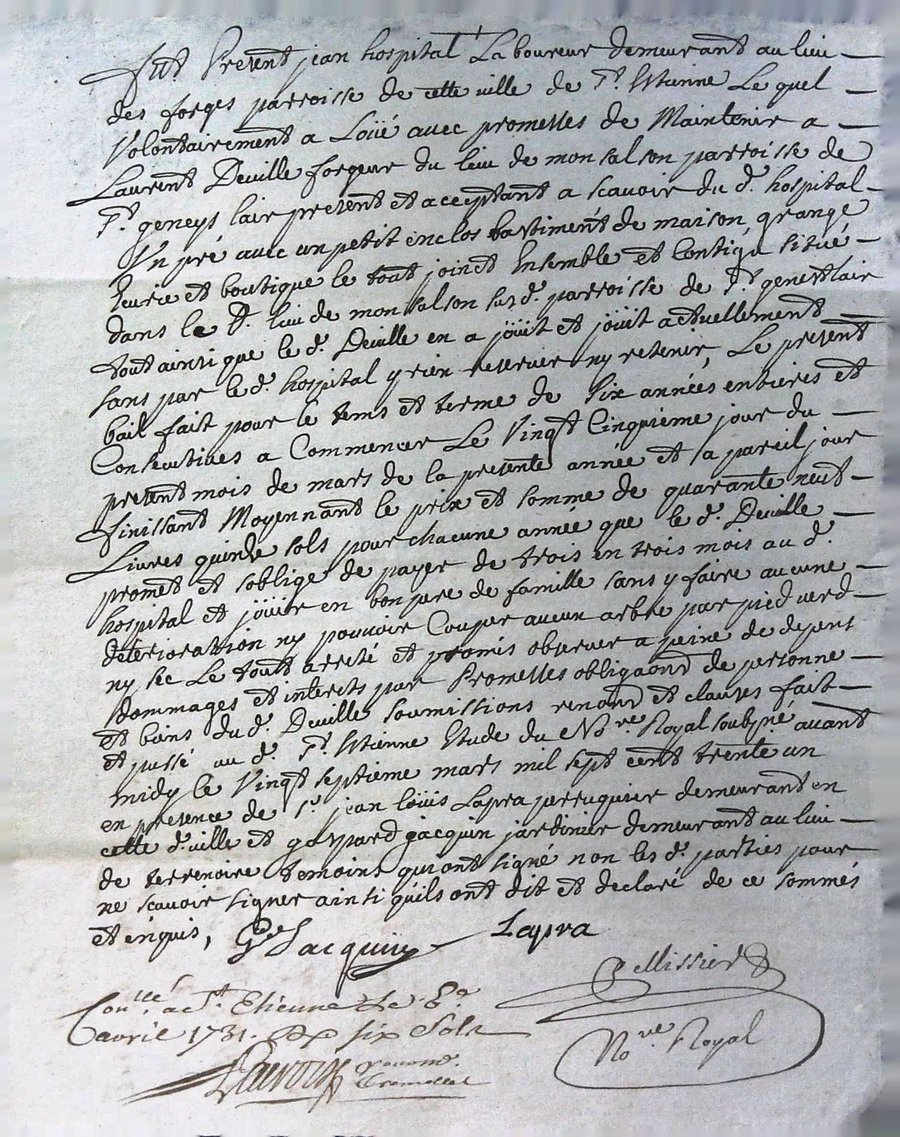 fut Present jean hospital Laboureur demeurant au lieu
des forges parroisse de cette ville de St. Estienne Le quel
Volontairement a Loüé avec promesses de Maintenir a
Laurent Deville forgeur du lieu de monsalson parroisse de
St. geneys lair present et aceptant a scavoir du d. hospital
Un pré avec un petit enclos bastiment de maison, grange
Eurie et boutique le tout joinct Ensemble et Contigu situé
dans le d. lieu de monsalson sus d. parroisse de St. genest lair
tout ainsi que le d. Deville en a joüit et joüit actuellement
sans par le d. hospital y rien reserver ny retenir, Le present
bail fait pour le tems et terme de Six années entieres et
Consecutives a Commencer Le Vingt Cinquieme jour du
present mois de mars de la presente année et a pareil jour
finissant Moyennant le prix et somme de quarante neuf
Livres quinse sols pour chacune année que le d. Deville
promet et soblige de payer de trois en trois mois au d.
hospital et joüir en bon pere de famille sans y faire aucune
deterioration ny pouvoir Couper aucun arbre par pied verd
ny sec Le tout arreté et promis observer a peine de depens
Dommages et interets par Promesses obligaond de personne
et biens du d. Deville soumissions renond et clauses fait
et passé au d. St. Estienne Etude du Nore Royal soubsné avant
midy le Vingt septieme mars mil sept cent trente un
en presence de Sr. jean Loüis Lapra perruquier demeurant en
cette d. ville et gaspard jacquin jardinier demeurant au lieu
de terrenoire temoins qui ont signé non les d. parties pour
ne scavoir signer ainsi quils ont dit et declaré de ce sommés
et enquis, Gd Jacquin Lapra
Pellissier
Nore Royal
Conllé a St. Etienne Le 8e
avril 1731. six Sols